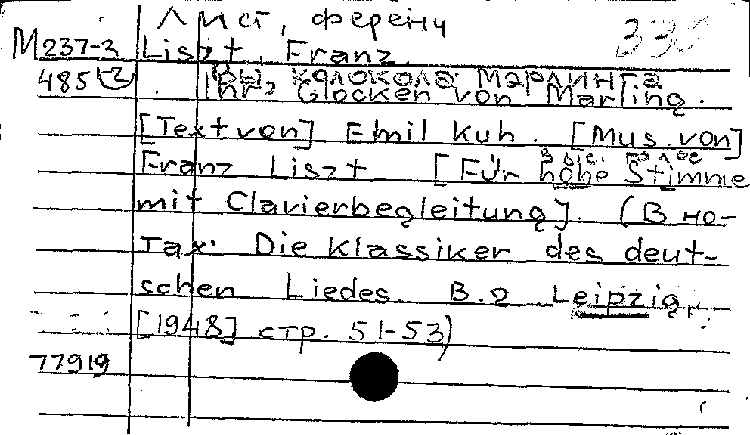 Лист, ференц
М237-3 Liszt, Franz. 338
Вы, колокола Марлинга
485 Ihr, Glocken von Marling.
[Text von] Emil Kuh. [Mus. von]
Franz Liszt [Für hohe Stimme
mit Clavierbegleitung]. (В но-
тах: Die Klassiker des deut-
schen Liedes. B.2 Leipzig,
[1948] стр. 51-53)
77919